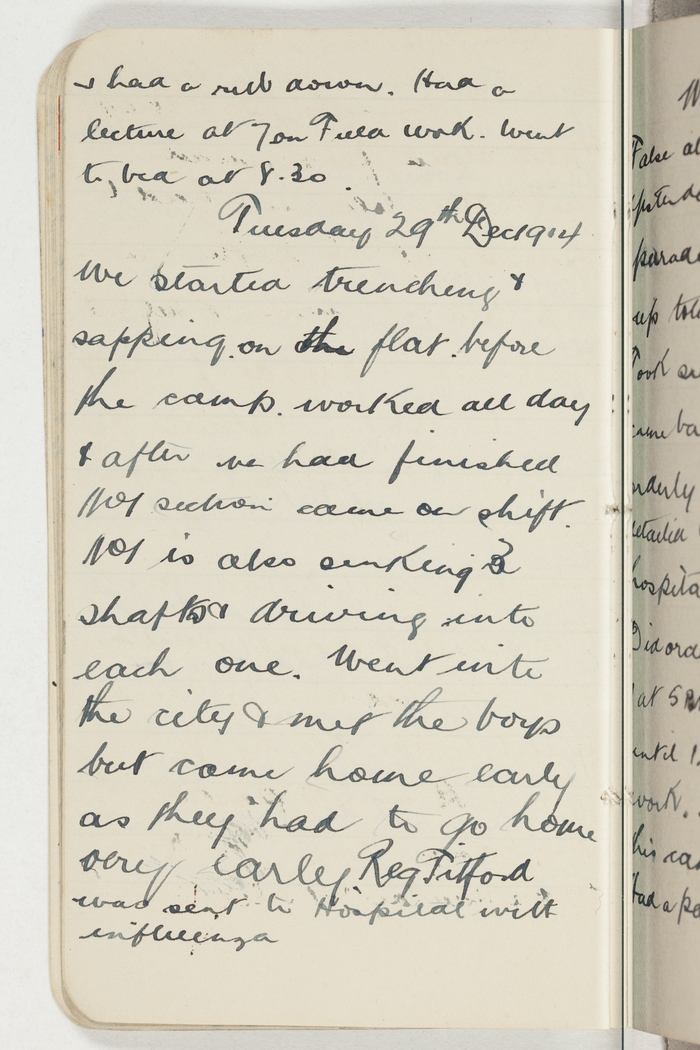 & had a rub down. Had a
lecture at 7 on Field work. Went
to bed at 8.30.
Tuesday 29th Dec 1914
We started trenching &
sapping on the flat before
the camp. worked all day
& after we had finished
No 1 section came on shift.
No 1 is also sinking 3
shafts & driving into
each one. Went into
the city & met the boys
but came home early
as they had to go home
very early Reg Titford
was sent to Hospital with
influenza
False
parade
up
Took
orderly
detailed
at 5
until
work.
Had a